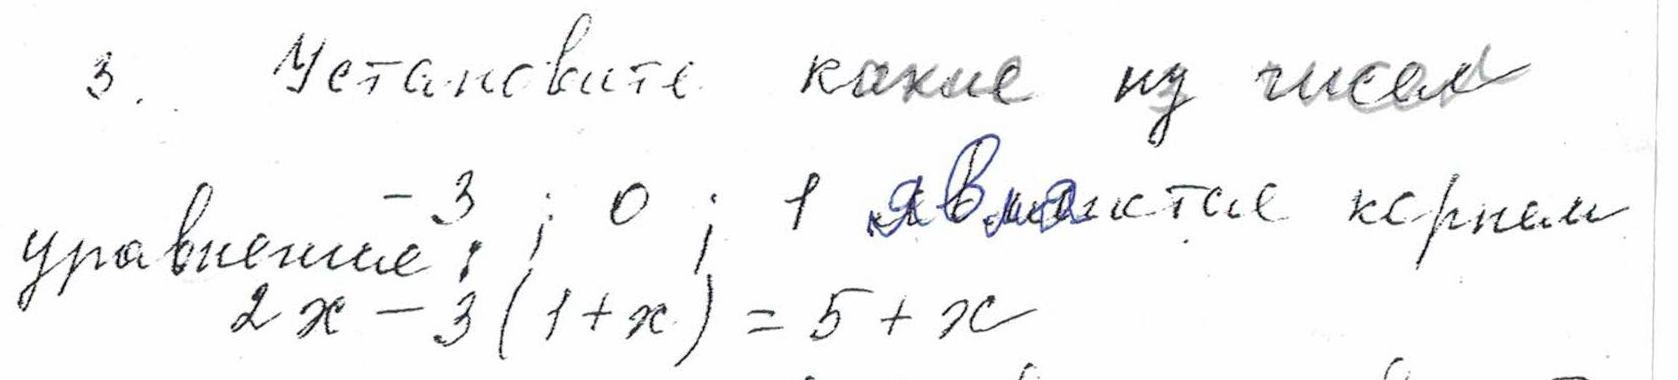 3. Установите какие из чисел
-3 ; 0 ; 1 являются корнем
уравнения:
2x - 3(1+x) = 5 + x